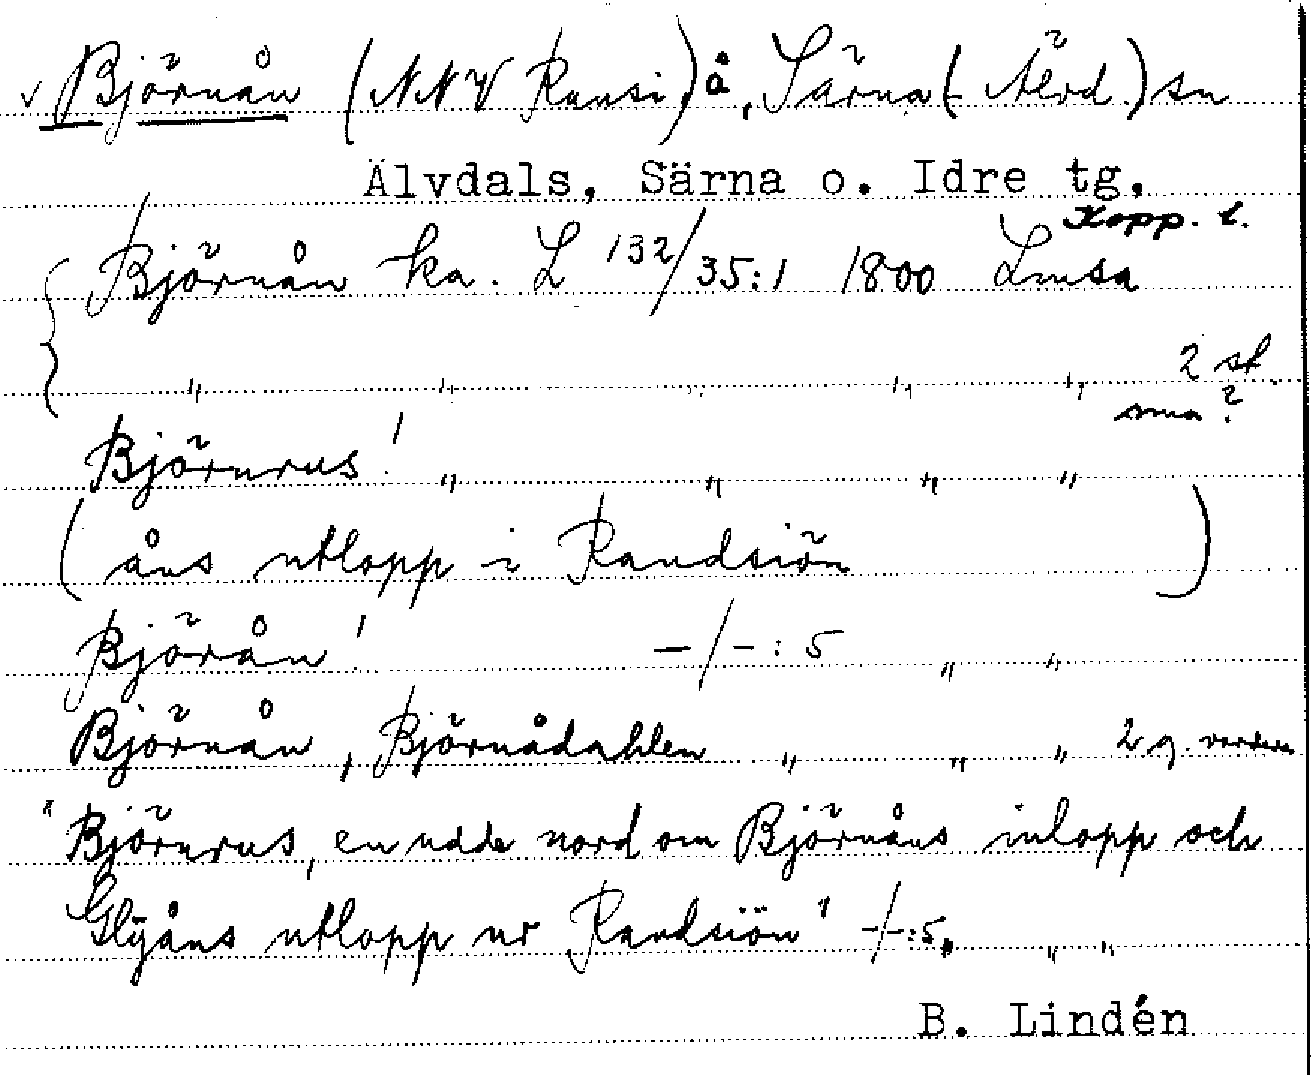 v Björnån (NNV Ransi) å, Särna (- Älvd.) sn
Älvdals, Särna o. Idre tg.
Kopp. l.
Björnån ka. L 132/35:1 1800 Lmsa
" " " " 2 st
sma?
Björnrus! " " " "
(åns utlopp i Randsiön)
Björån! -/-:5 " "
Björnån, Björnådahlen " " " 2 g. vardera
"Björnrus, en udde nord om Björnåns inlopp och
Glyåns utlopp ur Randsiön" -/-:5, " "
B. Lindén